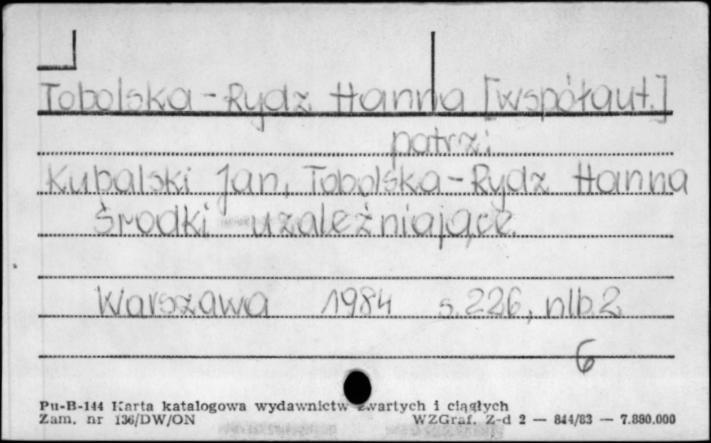 Tobolska-Rydz Hanna [współaut.]
patrz:
Kubalski Jan, Tobolska-Rydz Hanna
Środki uzależniające.
Warszawa 1984 s. 226, nlb. 2
6
Pu-B-144 Karta katalogowa wydawnictw zwartych i ciągłych
Zam. nr 136/DW/ON WZGraf. Z-d 2 — 844/83 — 7.880.000